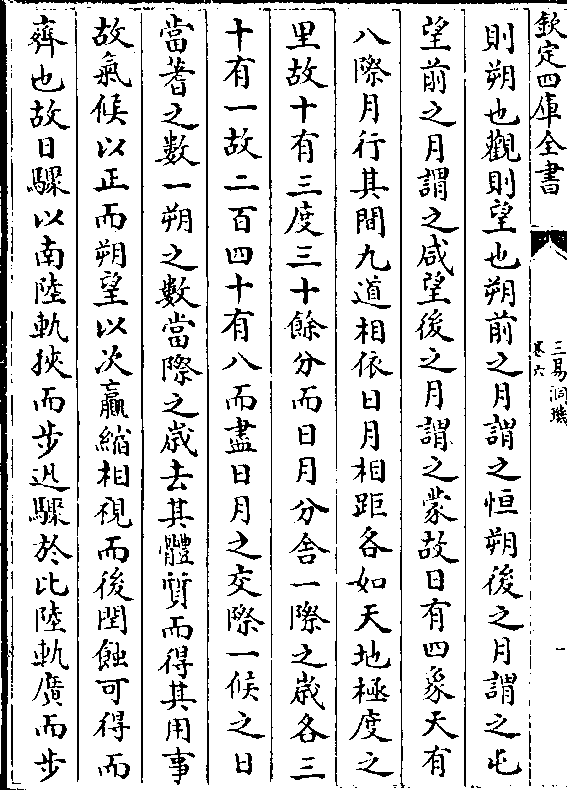 欽定四庫全書
三易洞璣
卷六
一
則朔也觀則望也朔前之月謂之恒朔後之月謂之屯
望前之月謂之咸望後之月謂之蒙故日有四象天有
八際月行其間九道相依日月相距各如天地極度之
里故十有三度三十餘分而日月分舍一際之歳各三
十有一故二百四十有八而盡日月之交際一候之日
當蓍之數一朔之數當際之歳去其體質而得其用事
故氣候以正而朔望以次贏縮相視而後閏蝕可得而
齊也故日驟以南陸軌挾而步迅驟於北陸軌廣而步